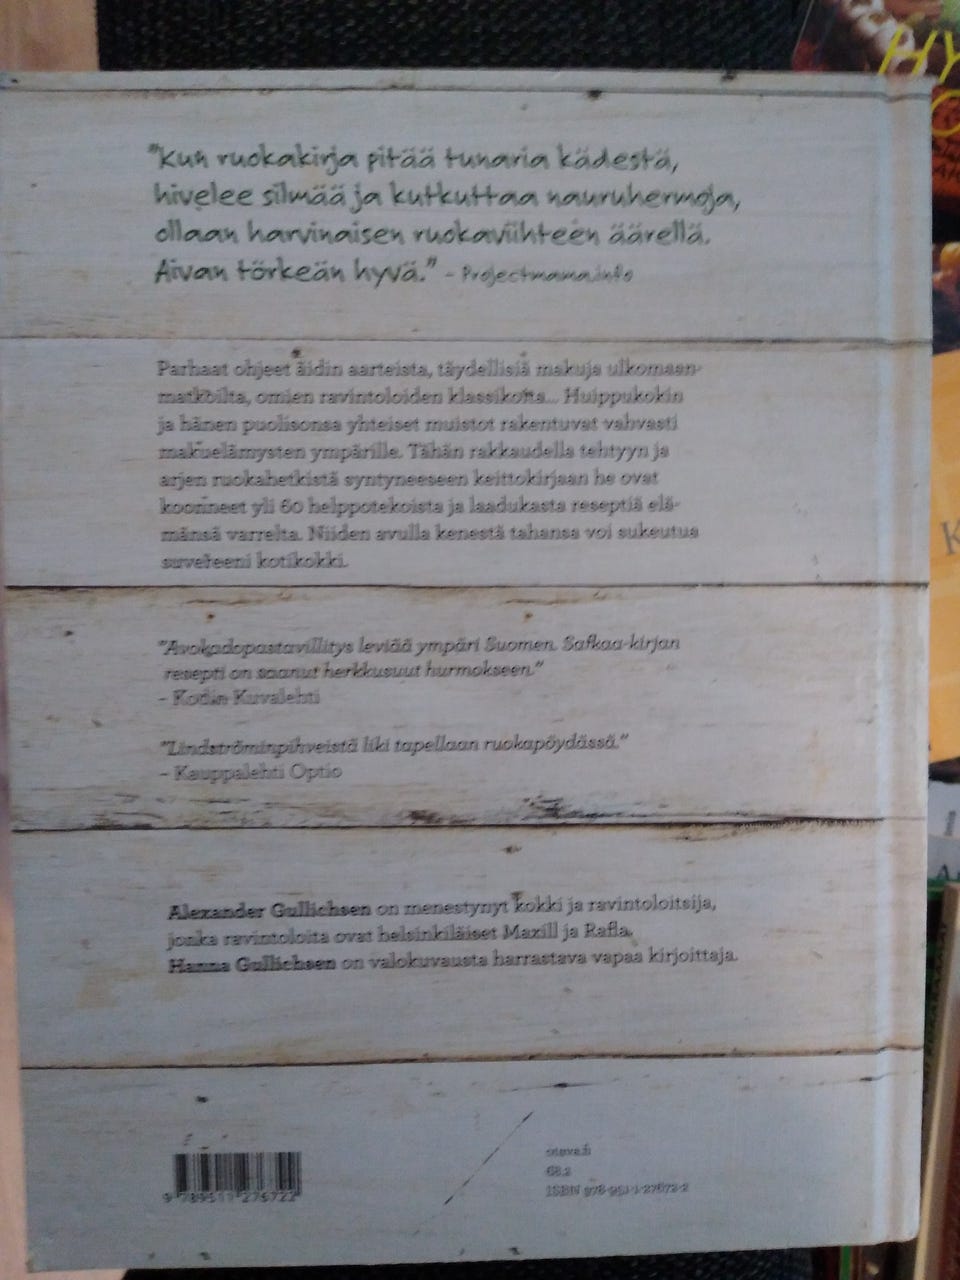 "Kun ruokakirja pitää tunaria kädestä,
hivelee silmää ja kutkuttaa nauruhermoja,
ollaan harvinaisen ruokaviihteen äärellä.
Aivan törkeän hyvä." - Projectmama.info
Parhaat ohjeet äidin aarteista, täydellisiä makuja ulkomaan-
matkoilta, omien ravintoloiden klassikoita... Huippukokin
ja hänen puolisonsa yhteiset muistot rakentuvat vahvasti
makuelämysten ympärille. Tähän rakkaudella tehtyyn ja
arjen ruokahetkistä syntyneeseen keittokirjaan he ovat
koonneet yli 60 helppotekoista ja laadukasta reseptiä elä-
mänsä varrelta. Niiden avulla kenestä tahansa voi sukeutua
suvereeni kotikokki.
"Avokadopastavillitys leviää ympäri Suomen. Safkaa-kirjan
resepti on saanut herkkusuut hurmokseen."
- Kodin Kuvalehti
"Lindströminpihveistä liki tapellaan ruokapöydässä."
- Kauppalehti Optio
Alexander Gullichsen on menestynyt kokki ja ravintoloitsija,
jonka ravintoloita ovat helsinkiläiset Maxill ja Rafla.
Hanna Gullichsen on valokuvausta harrastava vapaa kirjoittaja.
9 789511 276722
otava.fi
68.2
ISBN 978-951-1-27672-2
HY
K